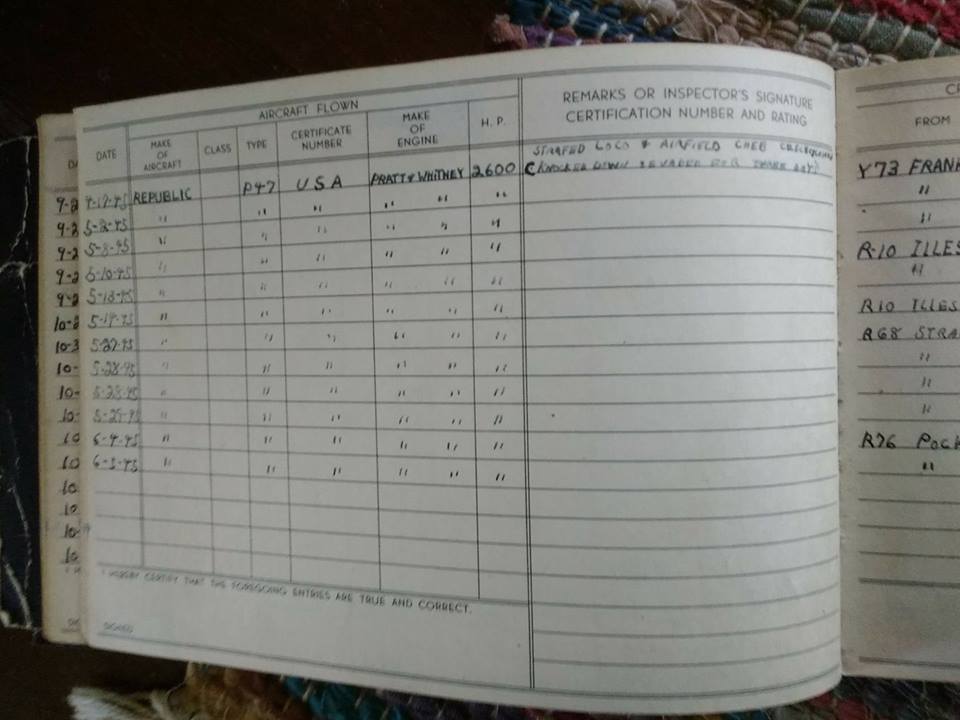 AIRCRAFT FLOWN
DATE MAKE OF AIRCRAFT CLASS TYPE CERTIFICATE NUMBER MAKE OF ENGINE H. P. REMARKS OR INSPECTOR'S SIGNATURE CERTIFICATION NUMBER AND RATING
STRAFED LOCO & AIRFIELD CHEB
4-17-45 REPUBLIC P47 USA PRATT & WHITNEY 2600 (KNOCKED DOWN
5-2-45 " " " " " "
5-8-45 " " " " " "
5-10-45 " " " " " "
5-13-45 " " " " " "
5-14-45 " " " " " "
5-27-45 " " " " " "
5-28-45 " " " " " "
5-28-45 " " " " " "
5-29-45 " " " " " "
6-4-45 " " " " " "
6-5-45 " " " " " "
I HEREBY CERTIFY THAT THE FOREGOING ENTRIES ARE TRUE AND CORRECT.
SIGNED
9-2
9-2
9-2
9-2
9-2
10-2
10-3
10-
10-
10-
10
10
10
10
10-
10
FROM
Y73 FRANK
"
"
R-10 ILLES
"
R10 ILLES
R68 STRA
"
"
"
R76 POCK
"